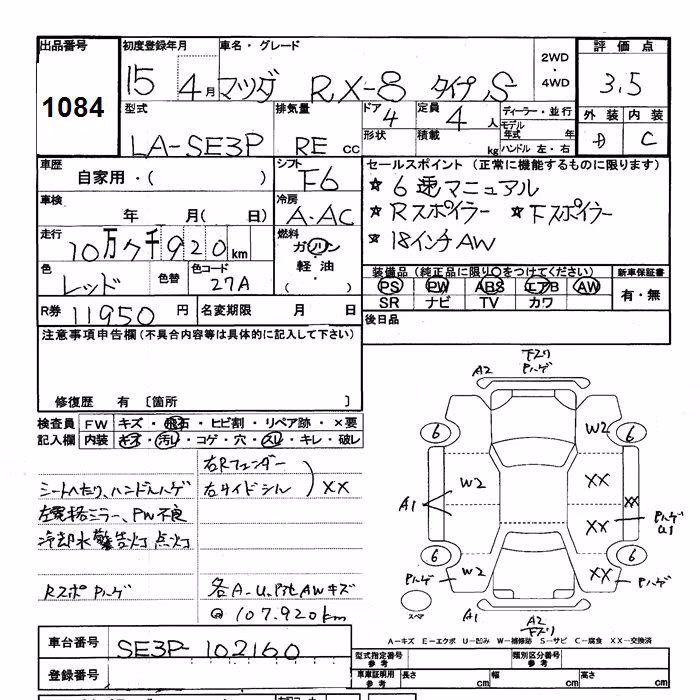 出品番号 初度登録年月 車名・グレード 2WD・4WD 評価点
1084 15 4月 マツダ RX-8 タイプS 3.5
型式 排気量 ドア 4 定員 4人 ディーラー・並行 外装 内装
LA-SE3P RE cc 形状 積載 kg モデル年式 年 C
ハンドル 左・右
車歴 シフト セールスポイント(正常に機能するものに限ります)
自家用・( ) F6 ☆ 6速マニュアル
車検 冷房 ☆ Rスポイラー ☆ Fスポイラー
年 月( 日) A.AC ☆ 18インチAW
走行 燃料
10万7千920km ガソリン
軽油
( )
色 色替 色コード 装備品(純正品に限り○をつけてください) 新車保証書
レッド 27A PS PW ABS エアB AW 有・無
SR ナビ TV カワ
R券 11950 円 名変期限 月 日 後日品
注意事項申告欄(不具合内容等は具体的に記入して下さい)
修復歴 有 〔箇所 〕
検査員 FW キズ・飛石・ヒビ割・リペア跡・×要
記入欄 内装 キズ・汚レ・コゲ・穴・スレ・キレ・破レ
右Rフェンダー
シートヘたり、ハンドルハゲ 右サイドシル XX
左電格ミラー、PW不良
冷却水警告灯点灯
RスポPハゲ 各A-U、Pた AWキズ
@107.920km
A2 下スリ Pハゲ
6 W2 6
W2 XX XX
A1 XX Pハゲ U1
6 6
Pハゲ W2 XX Pハゲ
スペア A1 A2 下スリ
A-キズ E-エクボ U-凹み W-補修跡 S-サビ C-腐食 XX-交換済
車台番号 SE3P-102160
登録番号
型式指定番号 参考 類別区分番号 参考
車庫証明用 参考 長さ cm 幅 cm 高さ cm